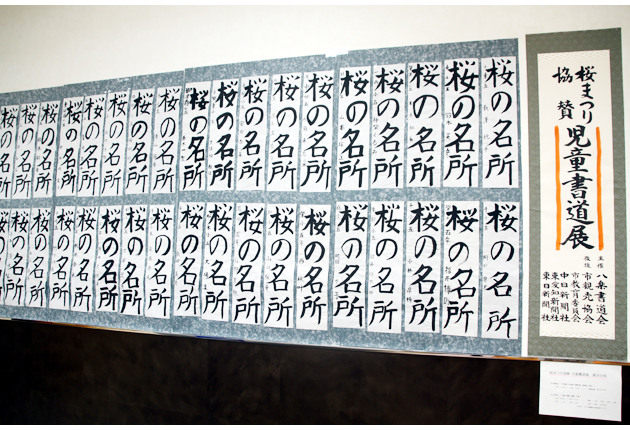 桜まつり
協賛
児童書道展
主催 八楽書道会
後援 市観光協会
市教育委員会
中日新聞社
東愛知新聞社
東日新聞社
桜の名所
桜の名所
桜の名所
桜の名所
桜の名所
桜の名所
桜の名所
桜の名所
桜の名所
桜の名所
桜の名所
桜の名所
桜の名所
桜の名所
桜の名所
桜の名所
桜の名所
桜の名所
桜の名所
桜の名所
桜の名所
桜の名所
桜の名所
桜の名所
桜の名所
桜の名所
桜の名所
桜の名所
桜の名所
桜の名所
桜の名所
桜の名所
桜の名所
桜の名所
桜の名所
桜の名所